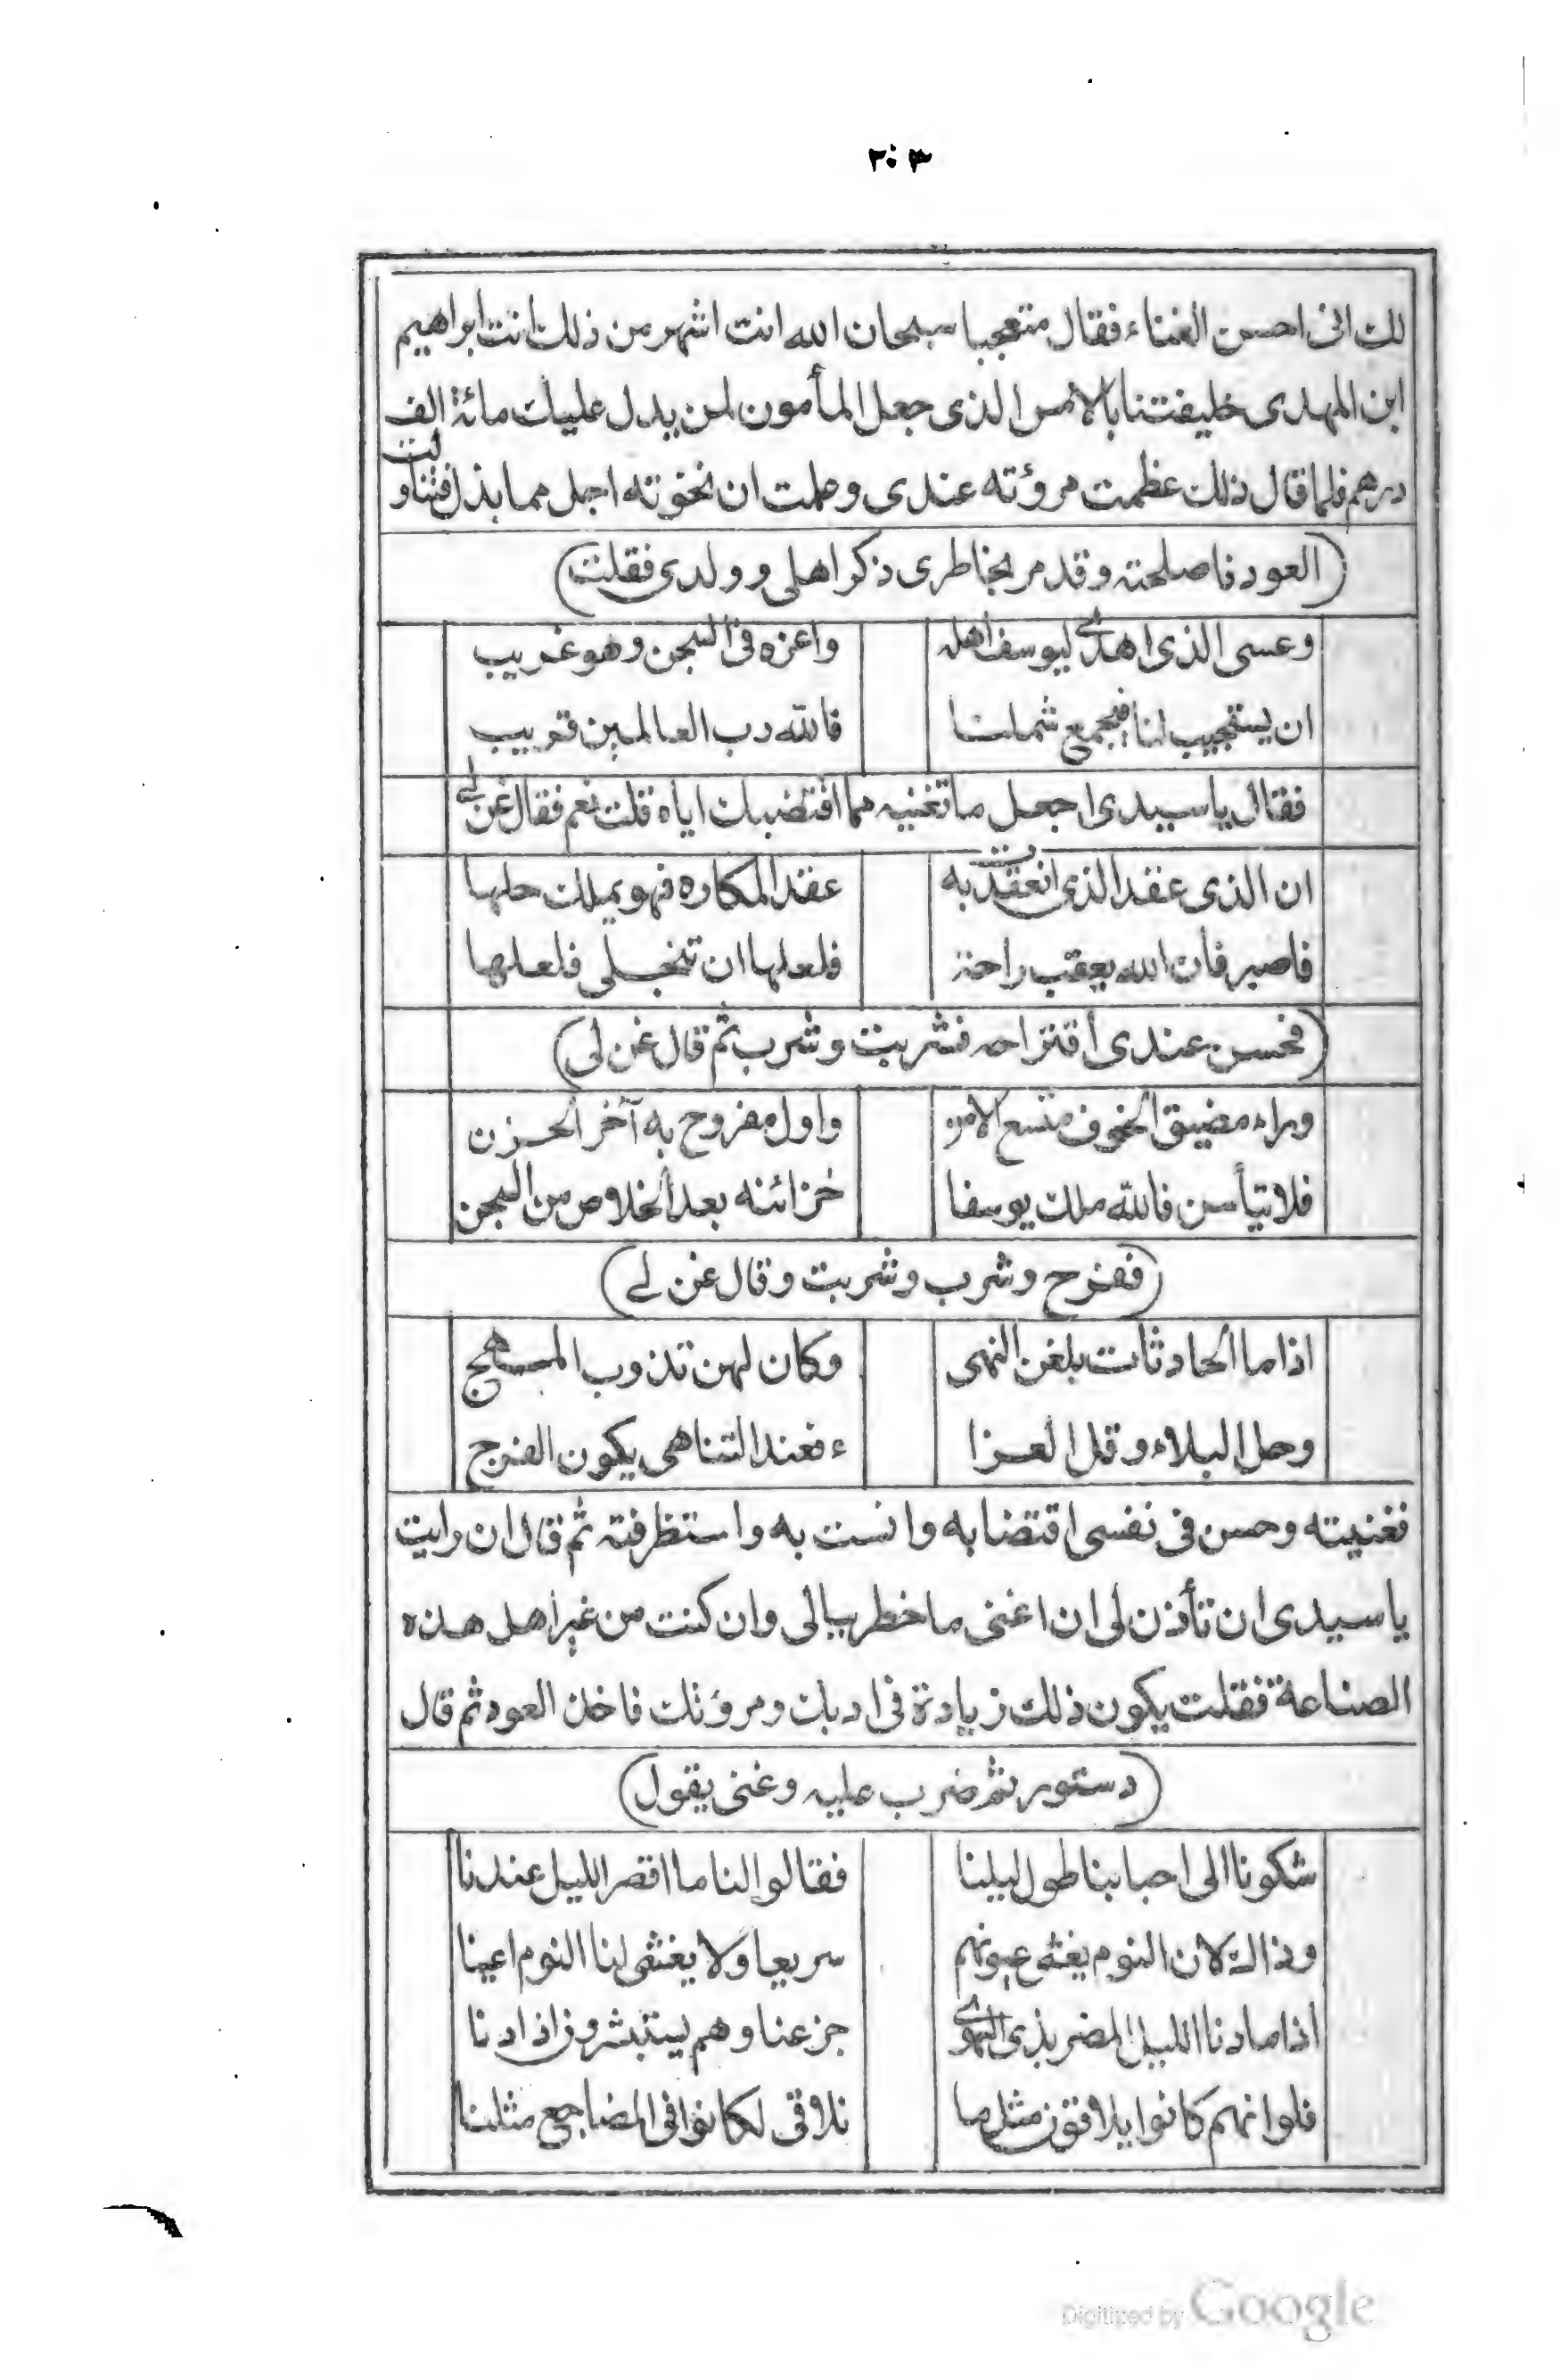 ٢٠٣
لك انى احسن الغناء فقال متعجبا سبحان الله انت اشهر من ذلك انت ابراهيم
ابن المهدى خليفتنا بالامس الذى جعل المأمون لمن يدل عليك مائة الف
درهم فلما قال ذلك عظمت مروؤته عندى وعلمت ان نخوته اجمل مما بذل فتناولت
(العود فاصلحته وقد مر بخاطرى ذكر اهلى وولدى فقلت)
وعسى الذى اهدى ليوسف اهله واعزه فى السجن وهو غريب
ان يستجيب لنا فيجمع شملنا فالله رب العالمين قريب
فقال يا سيدى اجعل ما تغنيه مما اقتضبك اياه قلت نعم فقال غن لى
ان الذى عقد الذى انعقدت به عقد المكاره فهو يملك حلها
فاصبر فان الله يعقب راحة فلعلها ان تنجلى فلعلها
(فحسن عندى اقتراحه فشربت وشرب ثم قال غن لى)
وراء مضيق الخوف متسع الامن واول مفروح به آخر الحزن
فلا تيأسن فالله ملك يوسفا خزائنه بعد الخلاص من السجن
(ففرح وشرب وشربت وقال غن لى)
اذا ما الحادثات بلغن النهى وكان لهن تذوب المهج
وحل البلاء وقل العزا ء فعند التناهى يكون الفرج
فغنيته وحسن فى نفسى اقتضابه وانست به واستظرفته ثم قال ان رايت
يا سيدى ان تأذن لى ان اغنى ما خطر ببالى وان كنت من غير اهل هذه
الصناعة فقلت يكون ذلك زيادة فى ادبك ومروؤتك فاخذ العود ثم قال
(دستور ثم ضرب عليه وغنى يقول)
شكونا الى احبابنا طول ليلنا فقالوا لنا ما اقصر الليل عندنا
وذاك لان النوم يغشى عيونهم سريعا ولا يغشى لنا النوم اعينا
اذا ما دنا الليل المضر بذى الهوى جزعنا وهم يستبشرون اذا دنا
فلو انهم كانوا يلاقون مثل ما نلاقى لكانوا فى المضاجع مثلنا
Digitized by Google